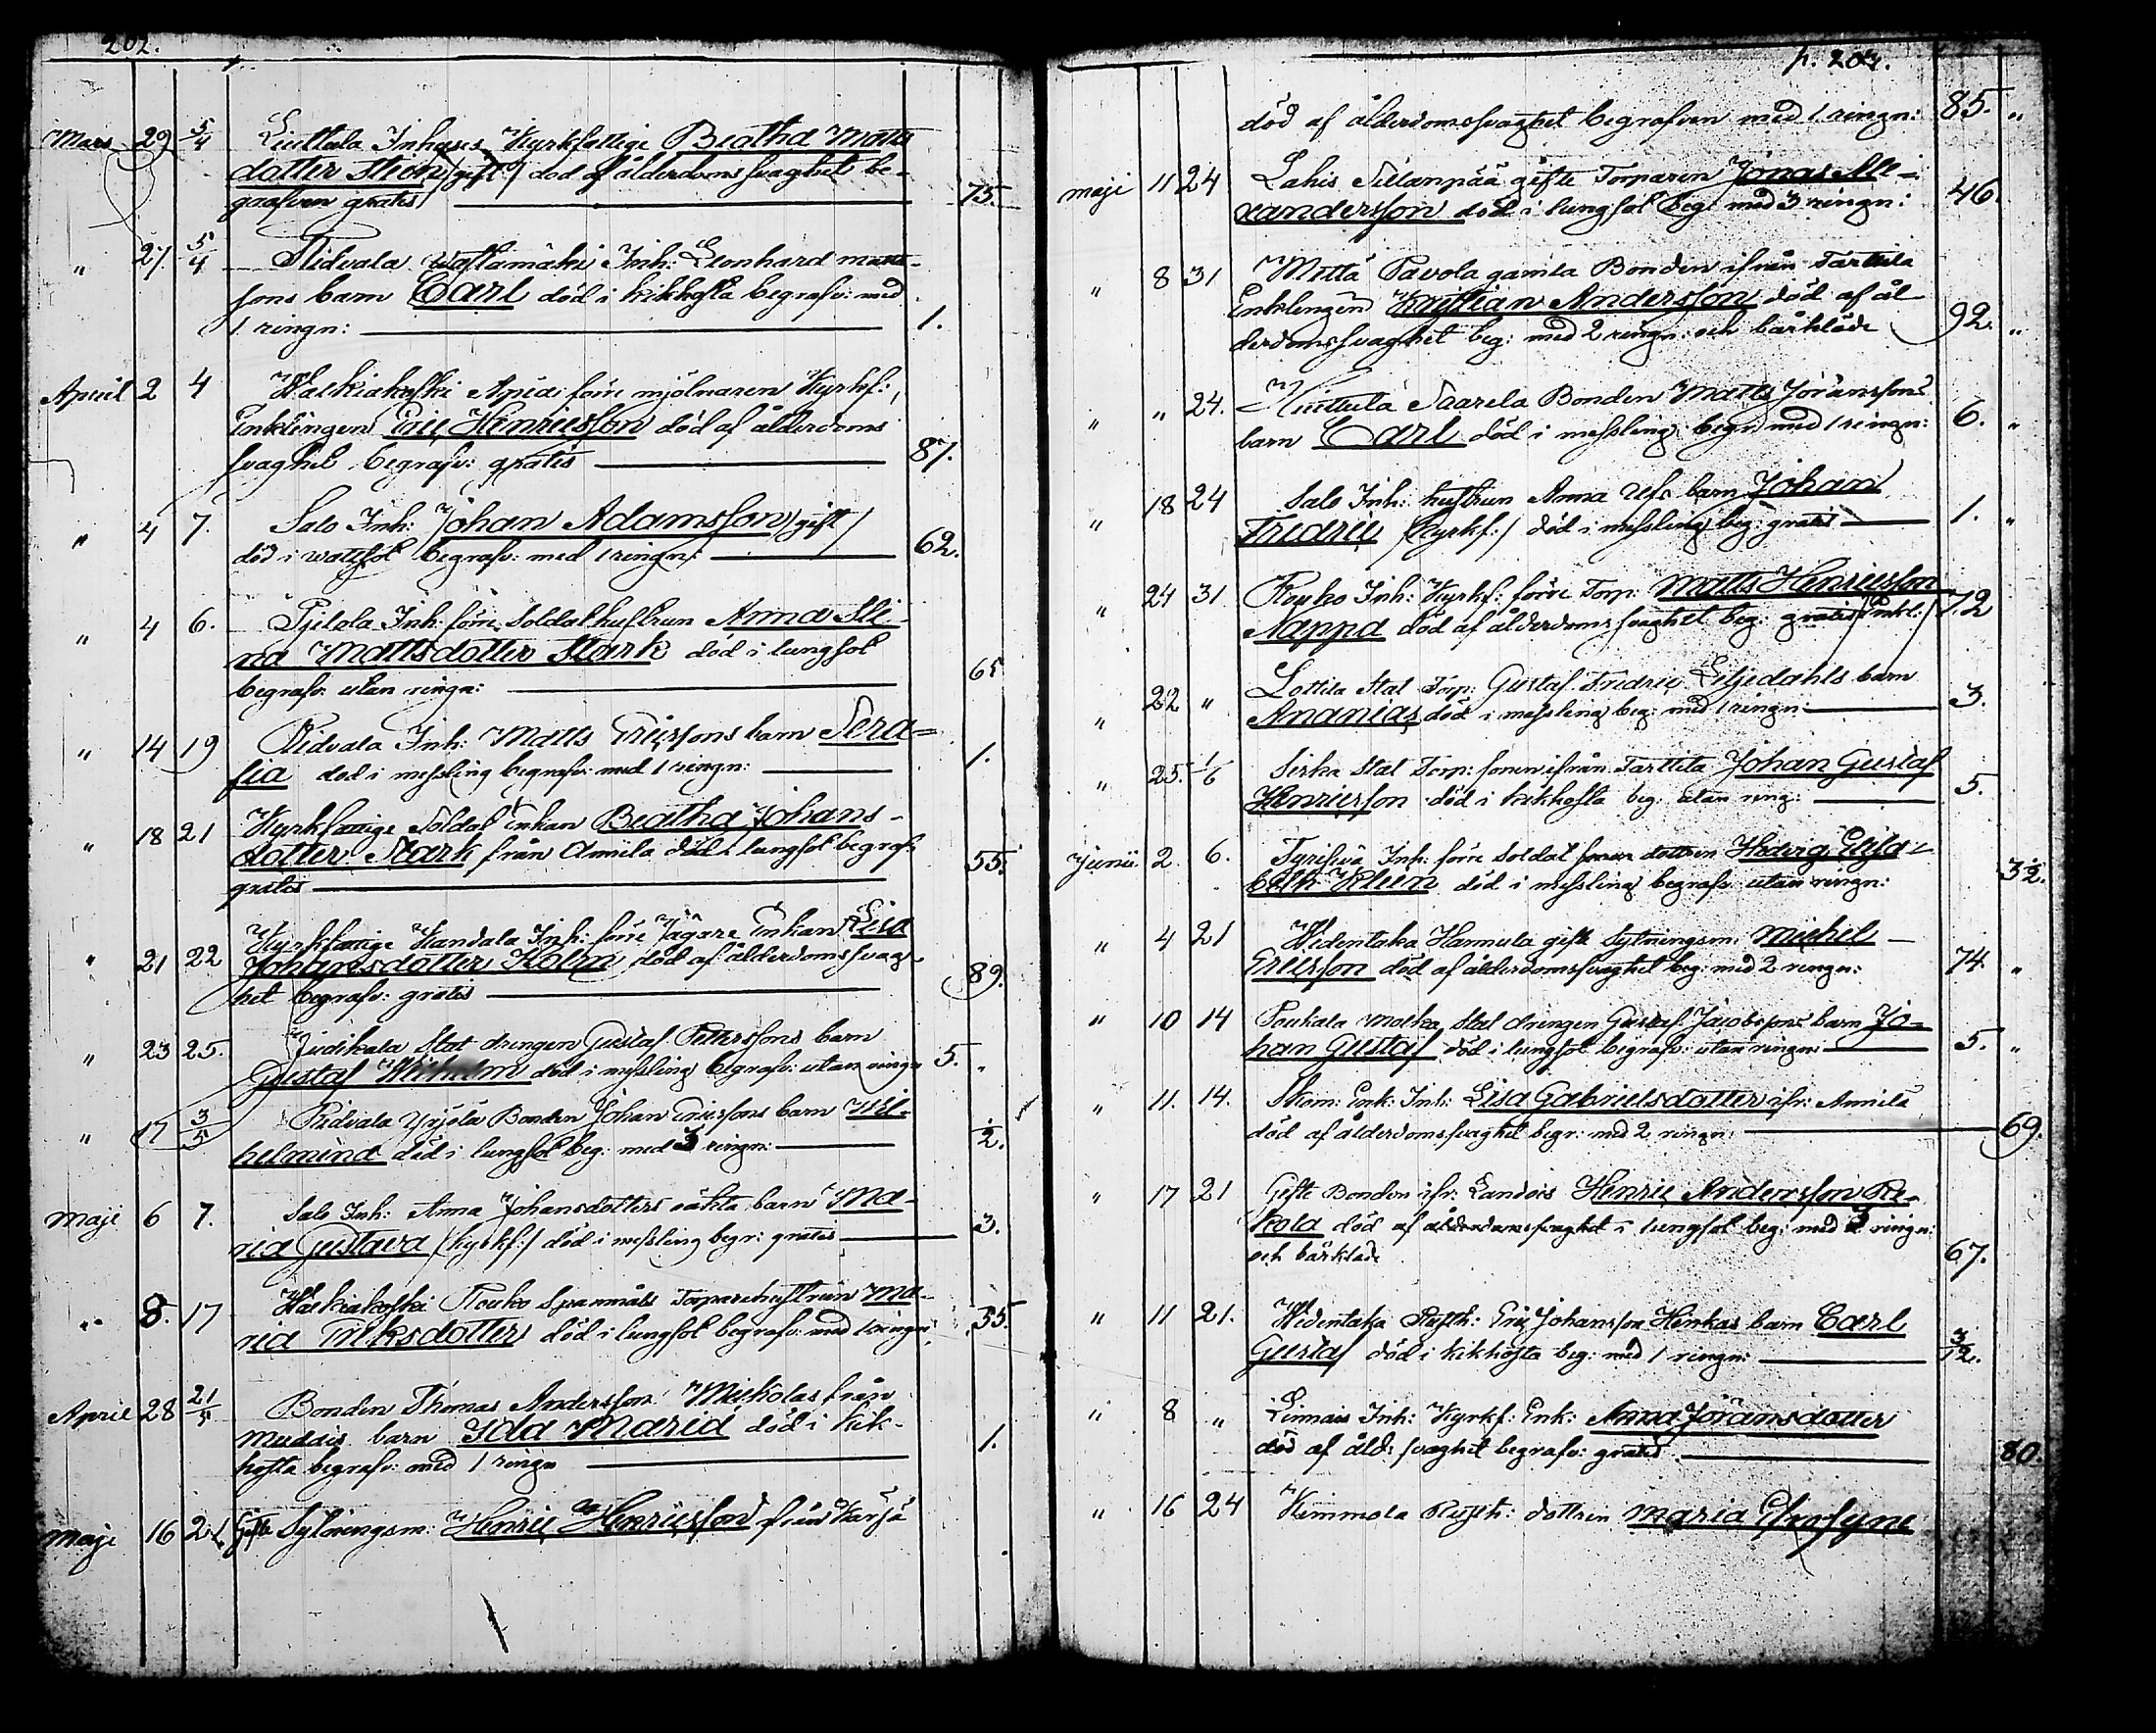 202.
Mars 29 5/4 Liuttala Inhyses Kyrkfattige Beatha Matts
dotter Steen /gift/ död af ålderdomssvaghet be-
grafven gratis 75.
" 27 5/4 Ridvala Inh: Leonhard Matts-
sons barn Carl död i kikhosta begrafv: med
1 ringn: 1.
April 2 4 Walkiakoski förre mjölnaren Kyrkf:
Enklingen Eric Henricsson död af ålderdoms
svaghet begrafv: gratis 87.
" 4 7. Salo Inh: Johan Adamsson /gift/
död i wattsot begrafv: med 1 ringn: 62.
" 4 6. Inh: förre Soldat hustrun Anna Sti-
na Mattsdotter Stark död i lungsot
begrafv: utan ringn: 65
" 14 19 Ridvala Inh: Matts Ericssons barn Sera-
fia död i messling begrafv: med 1 ringn: 1.
" 18 21 Kyrkfattige Soldat Enkan Beatha Johans-
dotter Stark från Annila död i lungsot begrafv:
gratis 55.
" 21 22 Kyrkfattige Kandala Inh: förre Jägare Enkan Lisa
Johansdotter Holm död af ålderdomssvag-
het begrafv: gratis 89.
" 23 25. Judikala Stat drengen Gustaf Petterssons barn
Gustaf Wilhelm död i messling begrafv: utan ringn 5. "
" 17 3/5 Ridvala Yrjölä Bonden Johan Ericssons barn Wil-
helmina död i lungsot beg: med 3 ringn: 1/2.
Maji 6 7. Salo Inh: Anna Johansdotters oäkta barn Ma-
ria Gustava /kyrkf:/ död i messling begr: gratis 3.
" 8. 17 Walkiakoski Rouko Spanmåls Torparehustrun Ma-
ria Eriksdotter död i lungsot begrafv: med 1 ringn: 55.
April 28 21/5 Bonden Thomas Andersson Mickolas från
Muddais barn Ida Maria död i kik-
hosta begrafv: med 1 ringn 1.
Maji 16 21 Gifte Sytningsm: Henric Henricsson från Karjä
p. 204.
död af ålderdomssvaghet begrafven med 1 ringn: 85. "
Maji 11 24 Lahis Sillanpää gifte Torparen Jonas Ale-
xandersson död i lungsot beg: med 3 ringn: 46.
" 8 31 Mettä Pavola gamla Bonden ifrån Tarttila
Enklingen Kristian Andersson död af ål-
derdomssvaghet beg: med 2 ringn: och bårkläde 92. "
" " 24. Huittula Saarela Bonden Matts Jöranssons
barn Carl död i messling begr: med 1 ringn: 6. "
" 18 24 Salo Inh: hustrun Anna Ulfs barn Johan
Fredric /kyrkf:/ död i messling beg: gratis 1. "
" 24 31 Rouko Inh: Kyrkf: förre Torp: Matts Henricsson
Nappa död af ålderdomssvaghet beg: gratis /Enkl:/ 72
" 22 " Lottila Stat Torp: Gustaf Fredric Liljedahls barn
Ananias död i messling beg: med 1 ringn: 3.
" 25. 1/6 Sirka Stat Torp: sonen ifrån Tarttila Johan Gustaf
Henricsson död i kikhosta beg: utan ring: 5.
Junii 2. 6. Tyrisevä Inh: förre Soldat dottren Hedvig Elisa-
beth Klein död i messling begrafv: utan ringn: 32.
" 4 21 Wedentaka Hannula gifte Sytningsm: Michel
Ericsson död af ålderdomssvaghet beg: med 2 ringn: 74. "
" 10 14 Roukala Molka Stat drengen Gustaf Jacobssons barn Jo-
han Gustaf död i lungsot begrafv: utan ringn: 5. "
" 11. 14. Enk: Inh: Lisa Gabrielsdotter ifr: Annila
död af ålderdomssvaghet begr: med 2 ringn: 69.
" 17 21 Gifte Bonden ifr: Landois Henric Andersson Re-
kola död af ålderdomssvaghet i lungsot beg: med 3 ringn:
och bårkläde 67.
" 11 21. Wedentaka Rusth: Eric Johansson Henkas barn Carl
Gustaf död i kikhosta beg: med 1 ringn: 3/12.
" 8 " Linnais Inh: Kyrkf: Enk: Anna Jöransdotter
död af åld: svaghet begrafv: gratis 80.
" 16 24 Kimmola Rusth: dottren Maria Efrosyne